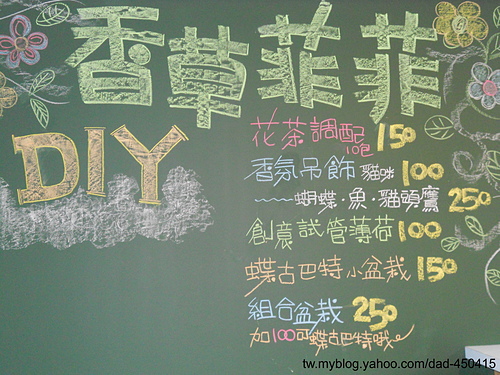 香草菲菲
DIY
花茶調配 150
10包
香氛吊飾 貓咪 100
~蝴蝶·魚·貓頭鷹 250
創意試管薄荷 100
蝶古巴特小盆栽 150
組合盆栽 250
加100可蝶古巴特哦
tw.myblog.yahoo.com/dad-450415